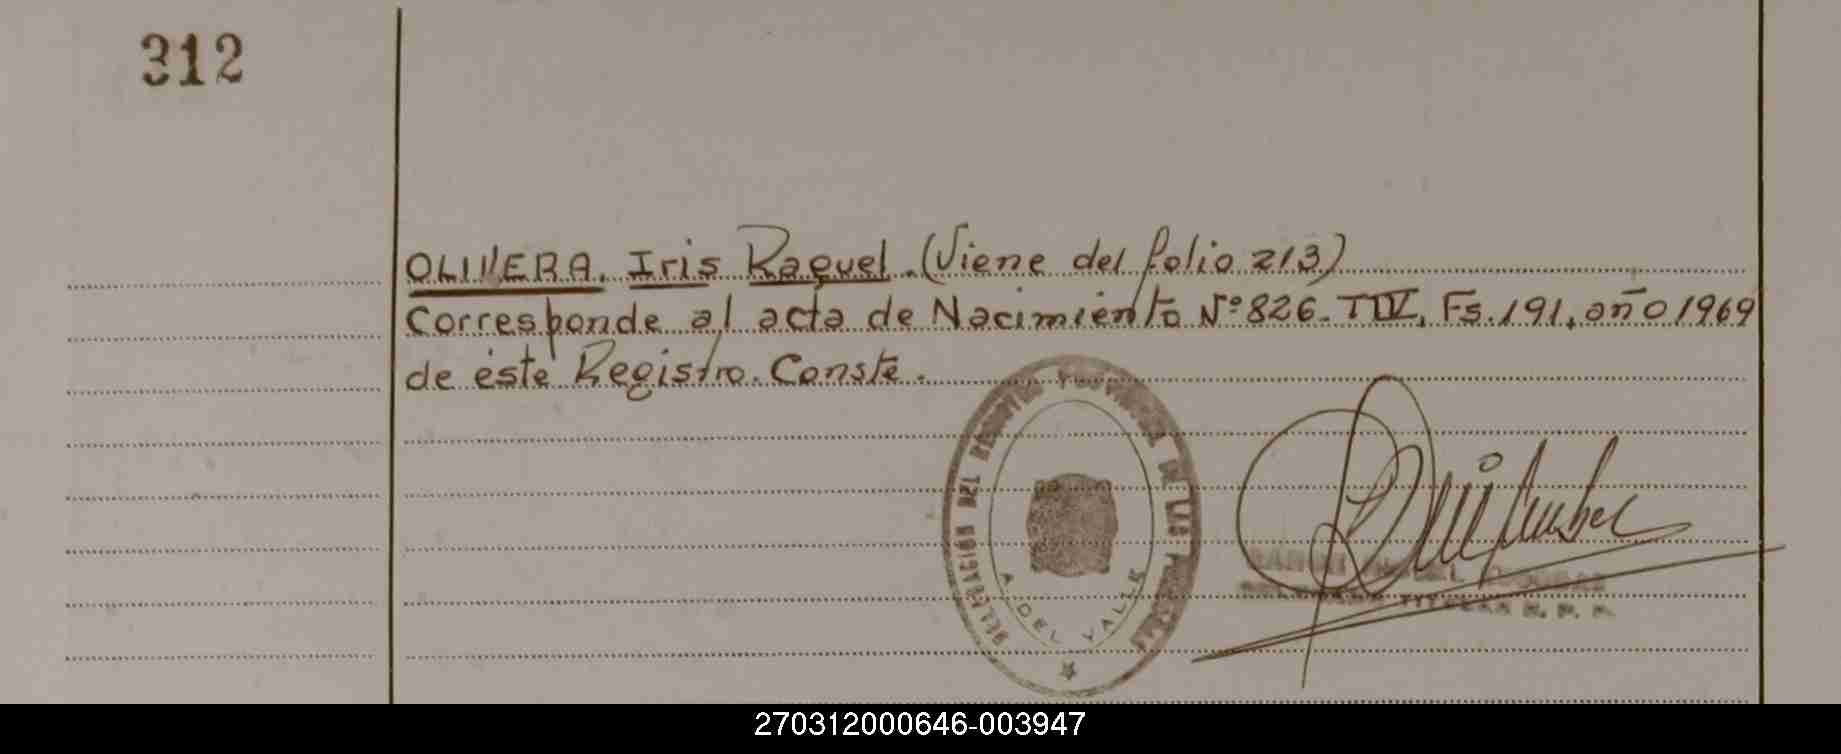 312
OLIVERA, Iris Raquel. (Viene del folio 213)
Corresponde al acta de Nacimiento Nº 826. T IV, Fs. 191, año 1969
de éste Registro. Conste.
DELEGACION DEL REGISTRO PROVINCIAL DE LAS PERSONAS
A. DEL VALLE
TITULAR R. P. P.
270312000646-003947